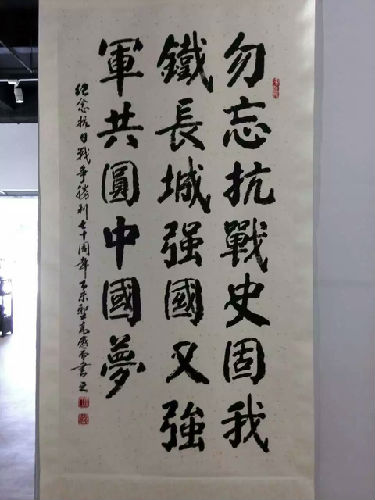 勿忘抗戰史固我
鐵長城强國又強
軍共圓中國夢
纪念抗日戰争勝利七十周年乙未